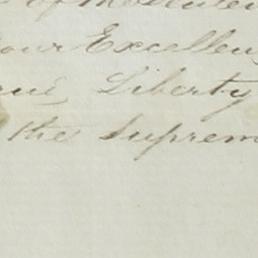 of
our Excellen
Liberty
the Suprem